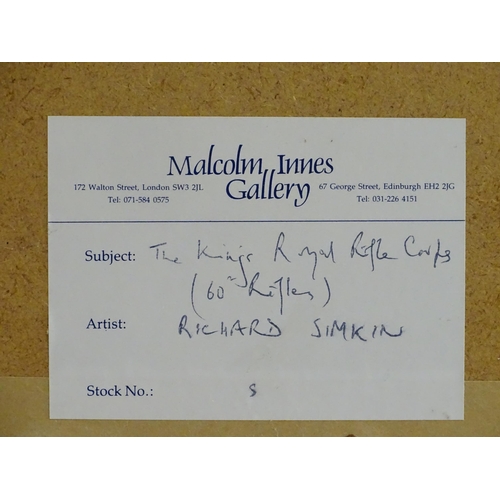 Malcolm Innes
Gallery
172 Walton Street, London SW3 2JL
Tel: 071-584 0575
67 George Street, Edinburgh EH2 2JG
Tel: 031-226 4151
Subject: The King's Royal Rifle Corps
(60th Rifles)
Artist: RICHARD SIMKIN
Stock No.: S